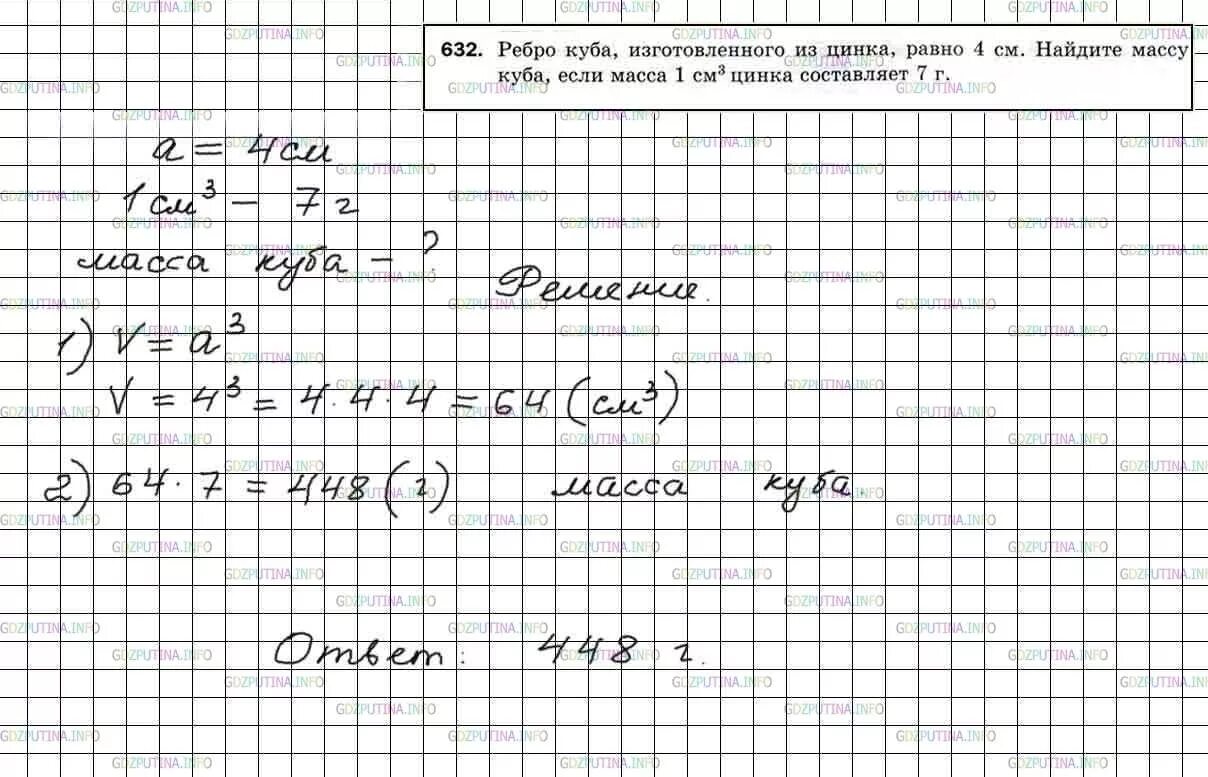 632. Ребро куба, изготовленного из цинка, равно 4 см. Найдите массу
куба, если масса 1 см³ цинка составляет 7 г.
a = 4 см
1 см³ – 7 г
масса куба – ?
Решение.
1) V = a³
V = 4³ = 4·4·4 = 64 (см³)
2) 64·7 = 448 (г) масса куба.
Ответ: 448 г.
GDZPUTINA.INFO